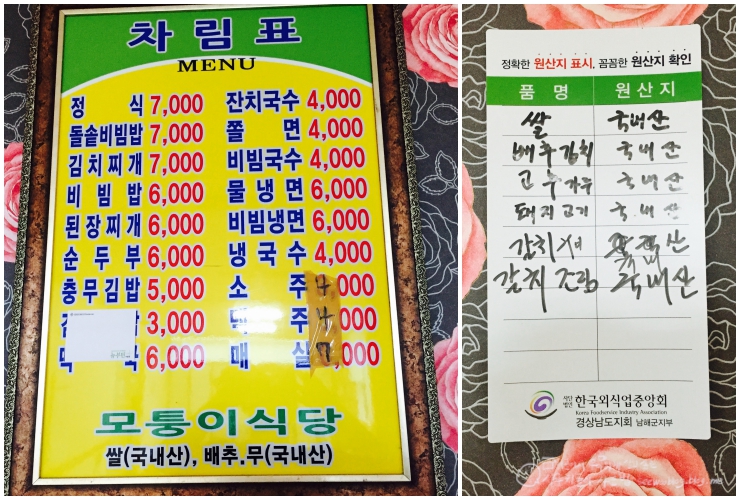 차림표
MENU
정식 7,000
돌솥비빔밥 7,000
김치찌개 7,000
비빔밥 6,000
된장찌개 6,000
순두부 6,000
충무김밥 5,000
3,000
6,000
잔치국수 4,000
쫄면 4,000
비빔국수 4,000
물냉면 6,000
비빔냉면 6,000
냉국수 4,000
소주 4,000
맥주 4,000
매실 7,000
모퉁이식당
쌀(국내산), 배추.무(국내산)
정확한 원산지 표시, 꼼꼼한 원산지 확인
품명 원산지
쌀 국내산
배추김치 국내산
고추가루 국내산
돼지고기 국내산
갈치
갈치조림 국내산
사단법인 한국외식업중앙회
Korea Foodservice Industry Association
경상남도지회 남해군지부